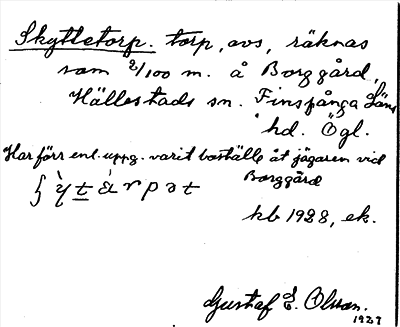 Skyttetorp. torp, avs, räknas
som 2/100 m. å Borggård,
Hällestads sn. Finspånga Läns
hd. Ögl.
Har förr enl. uppg. varit boställe åt jägaren vid
Borggård
kb 1928, ek.
Gustaf E. Olsson.
1927